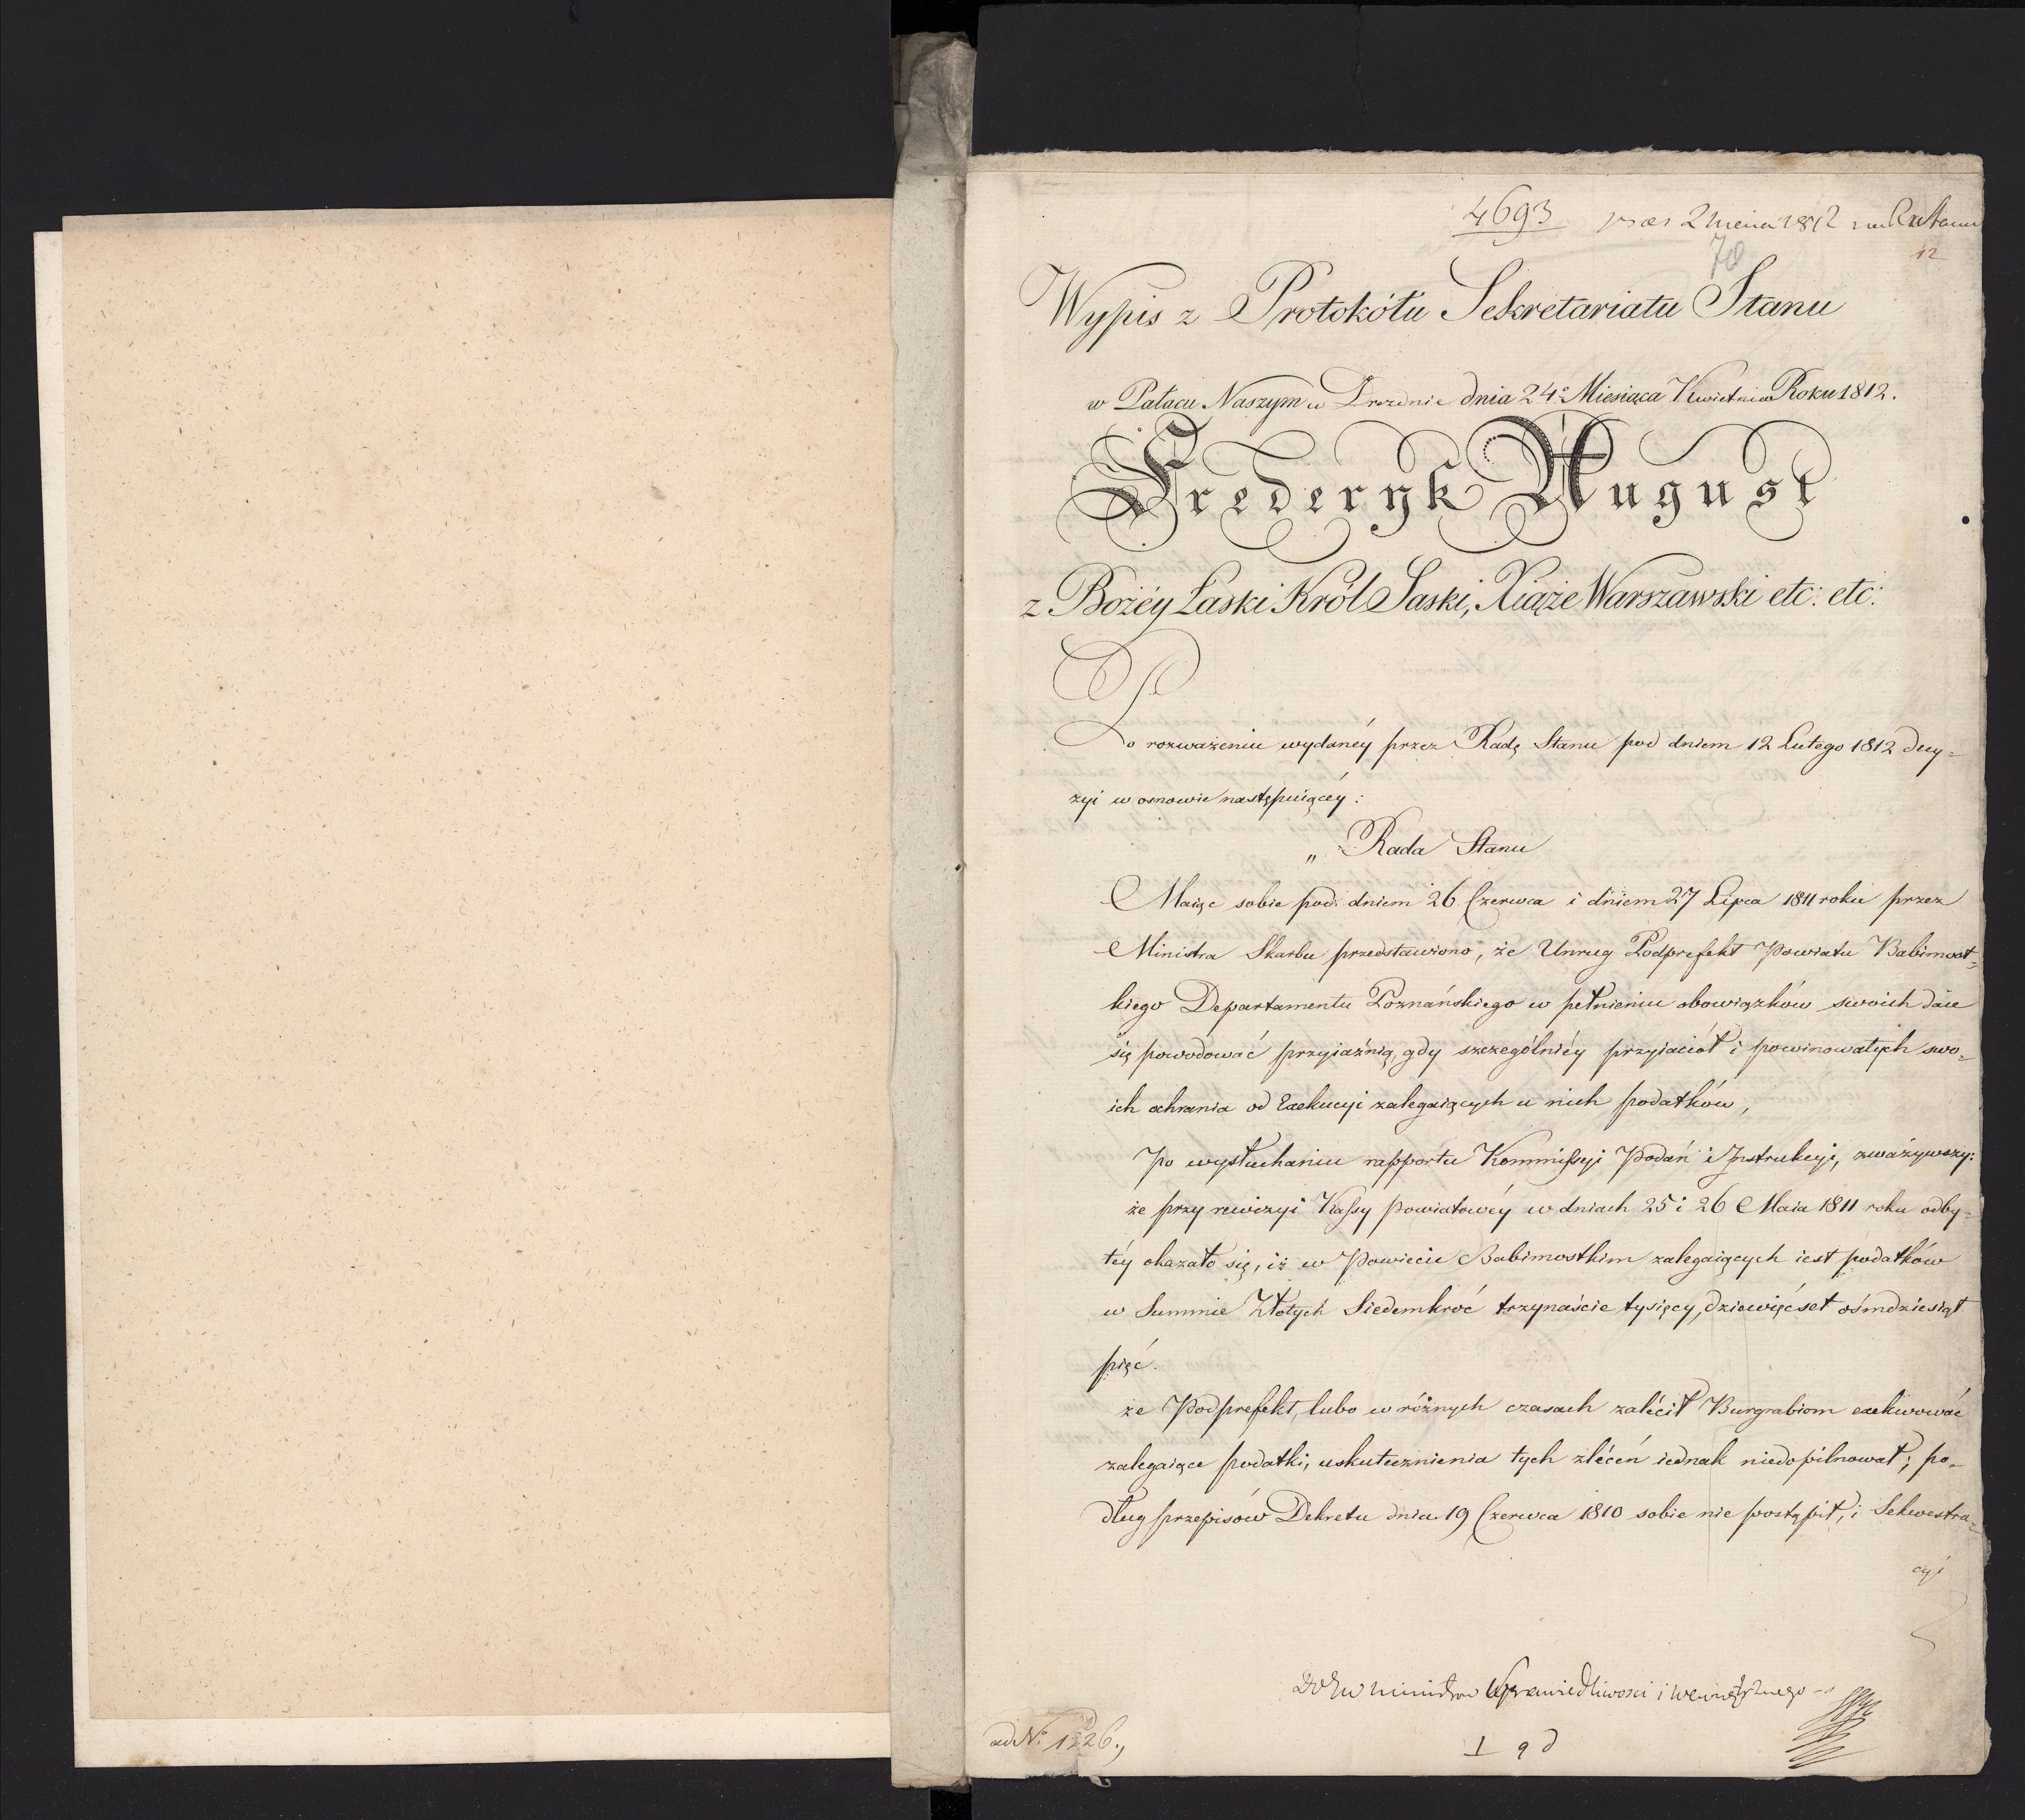 4693 praes 2 1812
70
12
Wypis z Protokółu Sekretariatu Stanu
w Pałacu Naszym w Dreznie dnia 24º Miesiąca Kwietnia Roku 1812.
Frederyk August
z Bożéy Łaski Król Saski, Xiąże Warszawski etc: etc:
Po rozważeniu wydanéy przez Radę Stanu pod dniem 12 Lutego 1812 decy=
zyi w osnowie następuiącéy:
„ Rada Stanu
Maiąc sobie pod dniem 26 Czerwca i dniem 27 Lipca 1811 roku przez
Ministra Skarbu przedstawiono, że Unrug Podprefekt Powiatu Babimost=
kiego Departamentu Poznańskiego w pełnieniu obowiązków swoich daie
się powodować przyiaźnią, gdy szczególniéy przyiaciół i powinowatych swo=
ich ochrania od Exekucyi zalegaiących u nich podatków,
Po wysłuchaniu rapportu Kommissyi Podań i Instrukcyi, zważywszy:
że przy rewizyi Kassy Powiatowéy w dniach 25 i 26 Maia 1811 roku odby=
téy okazało się, iż w Powiecie Babimostkim zalegaiących iest podatków
w Summie Złotych Siedemkroć trzynaście tysięcy, dziewięćset ośmdziesiąt
pięć.
że Podprefekt, lubo w różnych czasach zalécił Burgrabiom exekwować
zalegaiące podatki, uskutecznienia tych zléceń iednak niedopilnował; po=
dług przepisów Dekretu dnia 19 Czerwca 1810 sobie nie postąpił, i Sekwestra=
cyi
Ministrów Sprawiedliwosci i Wewnętrznego
ad Nº 1326.,